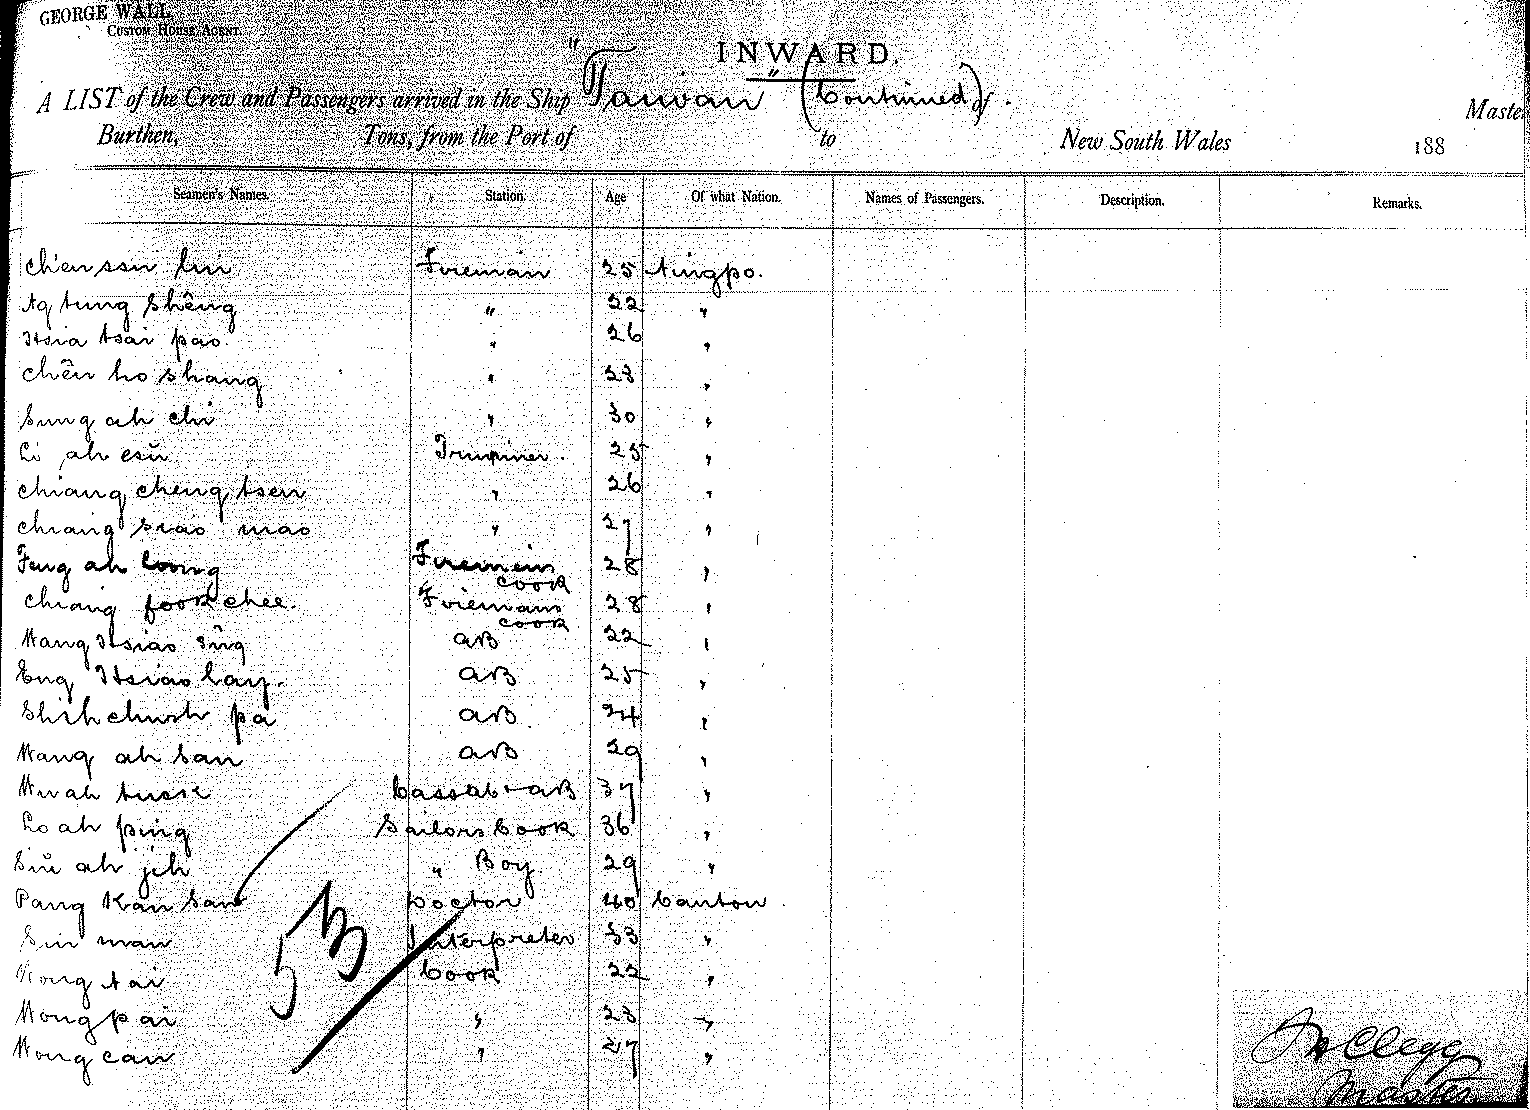 GEORGE WALL
CUSTOM HOUSE AGENT
INWARD.
A LIST of the Crew and Passengers arrived in the Ship "Taiwan" (Continued) of Master
Burthen, Tons, from the Port of to New South Wales 188
Seamen's Names. Station. Age Of what Nation. Names of Passengers. Description. Remarks.
Chen ssu lin Fireman 25 Ningpo.
Ng tung Shêng " 22 "
Hsia tsai pao. " 26 "
Chên ho shang " 28 "
Sung ah chi " 30 "
Li ah esŭ Trimmer. 25 "
Chiang cheng tsen " 26 "
Chiang siao mao " 27 "
Feng ah loong Firemens cook 28 "
Chiang fook chee. Firemans cook 28 "
Wang Hsiao sing aB 22 "
Eng Hsiao lay. aB 25 "
Shih chush pa aB. 24 "
Wang ah San aB 29 "
Wu ah tuck Cassab + aB 37 "
Lo ah ping Sailors Cook 36 "
Siŭ ah jeh " Boy 29 "
Pang Kan San Doctor 40 Canton.
Sin man Interpreter 33 "
Wong tai Cook 22 "
Wong pai " 23 "
Wong can " 27 "
53
Clegg
Master